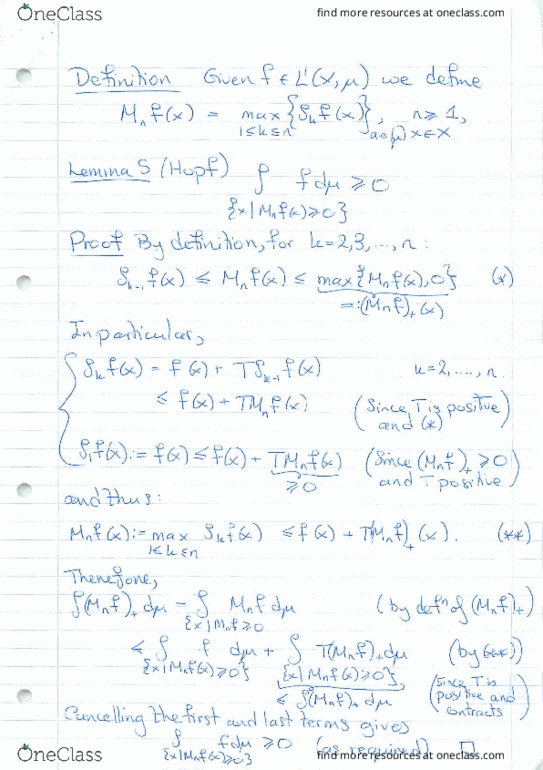 OneClass find more resources at oneclass.com
Definition Given f ∈ L¹(X, μ) we define
Mₙf(x) = max {Sₖf(x)}, n ≥ 1,
1≤k≤n a.e.(μ) x∈X
Lemma 5 (Hopf) ∫ f dμ ≥ 0
{x | Mₙf(x) ≥ 0}
Proof By definition, for k = 2, 3, ..., n :
Sₖ₋₁f(x) ≤ Mₙf(x) ≤ max{Mₙf(x), 0} (*)
=: (Mₙf)₊(x)
In particular,
Sₖf(x) = f(x) + TSₖ₋₁f(x) k = 2, ...., n.
≤ f(x) + TMₙf(x) (Since T is positive
and (*))
S₁f(x) := f(x) ≤ f(x) + TMₙf(x) (Since (Mₙf)₊ ≥ 0
≥ 0 and T positive)
and thus:
Mₙf(x) := max Sₖf(x) ≤ f(x) + T(Mₙf)₊(x). (**)
1≤k≤n
Therefore,
∫(Mₙf)₊ dμ = ∫ Mₙf dμ (by defⁿ of (Mₙf)₊)
{x | Mₙf ≥ 0}
≤ ∫ f dμ + ∫ T(Mₙf)₊ dμ (by (**))
{x | Mₙf(x) ≥ 0} {x | Mₙf(x) ≥ 0},
≤ ∫(Mₙf)₊ dμ (since T is
positive and
contracts)
Cancelling the first and last terms gives
∫ f dμ ≥ 0 (as required) □
{x | Mₙf(x) ≥ 0}
OneClass find more resources at oneclass.com